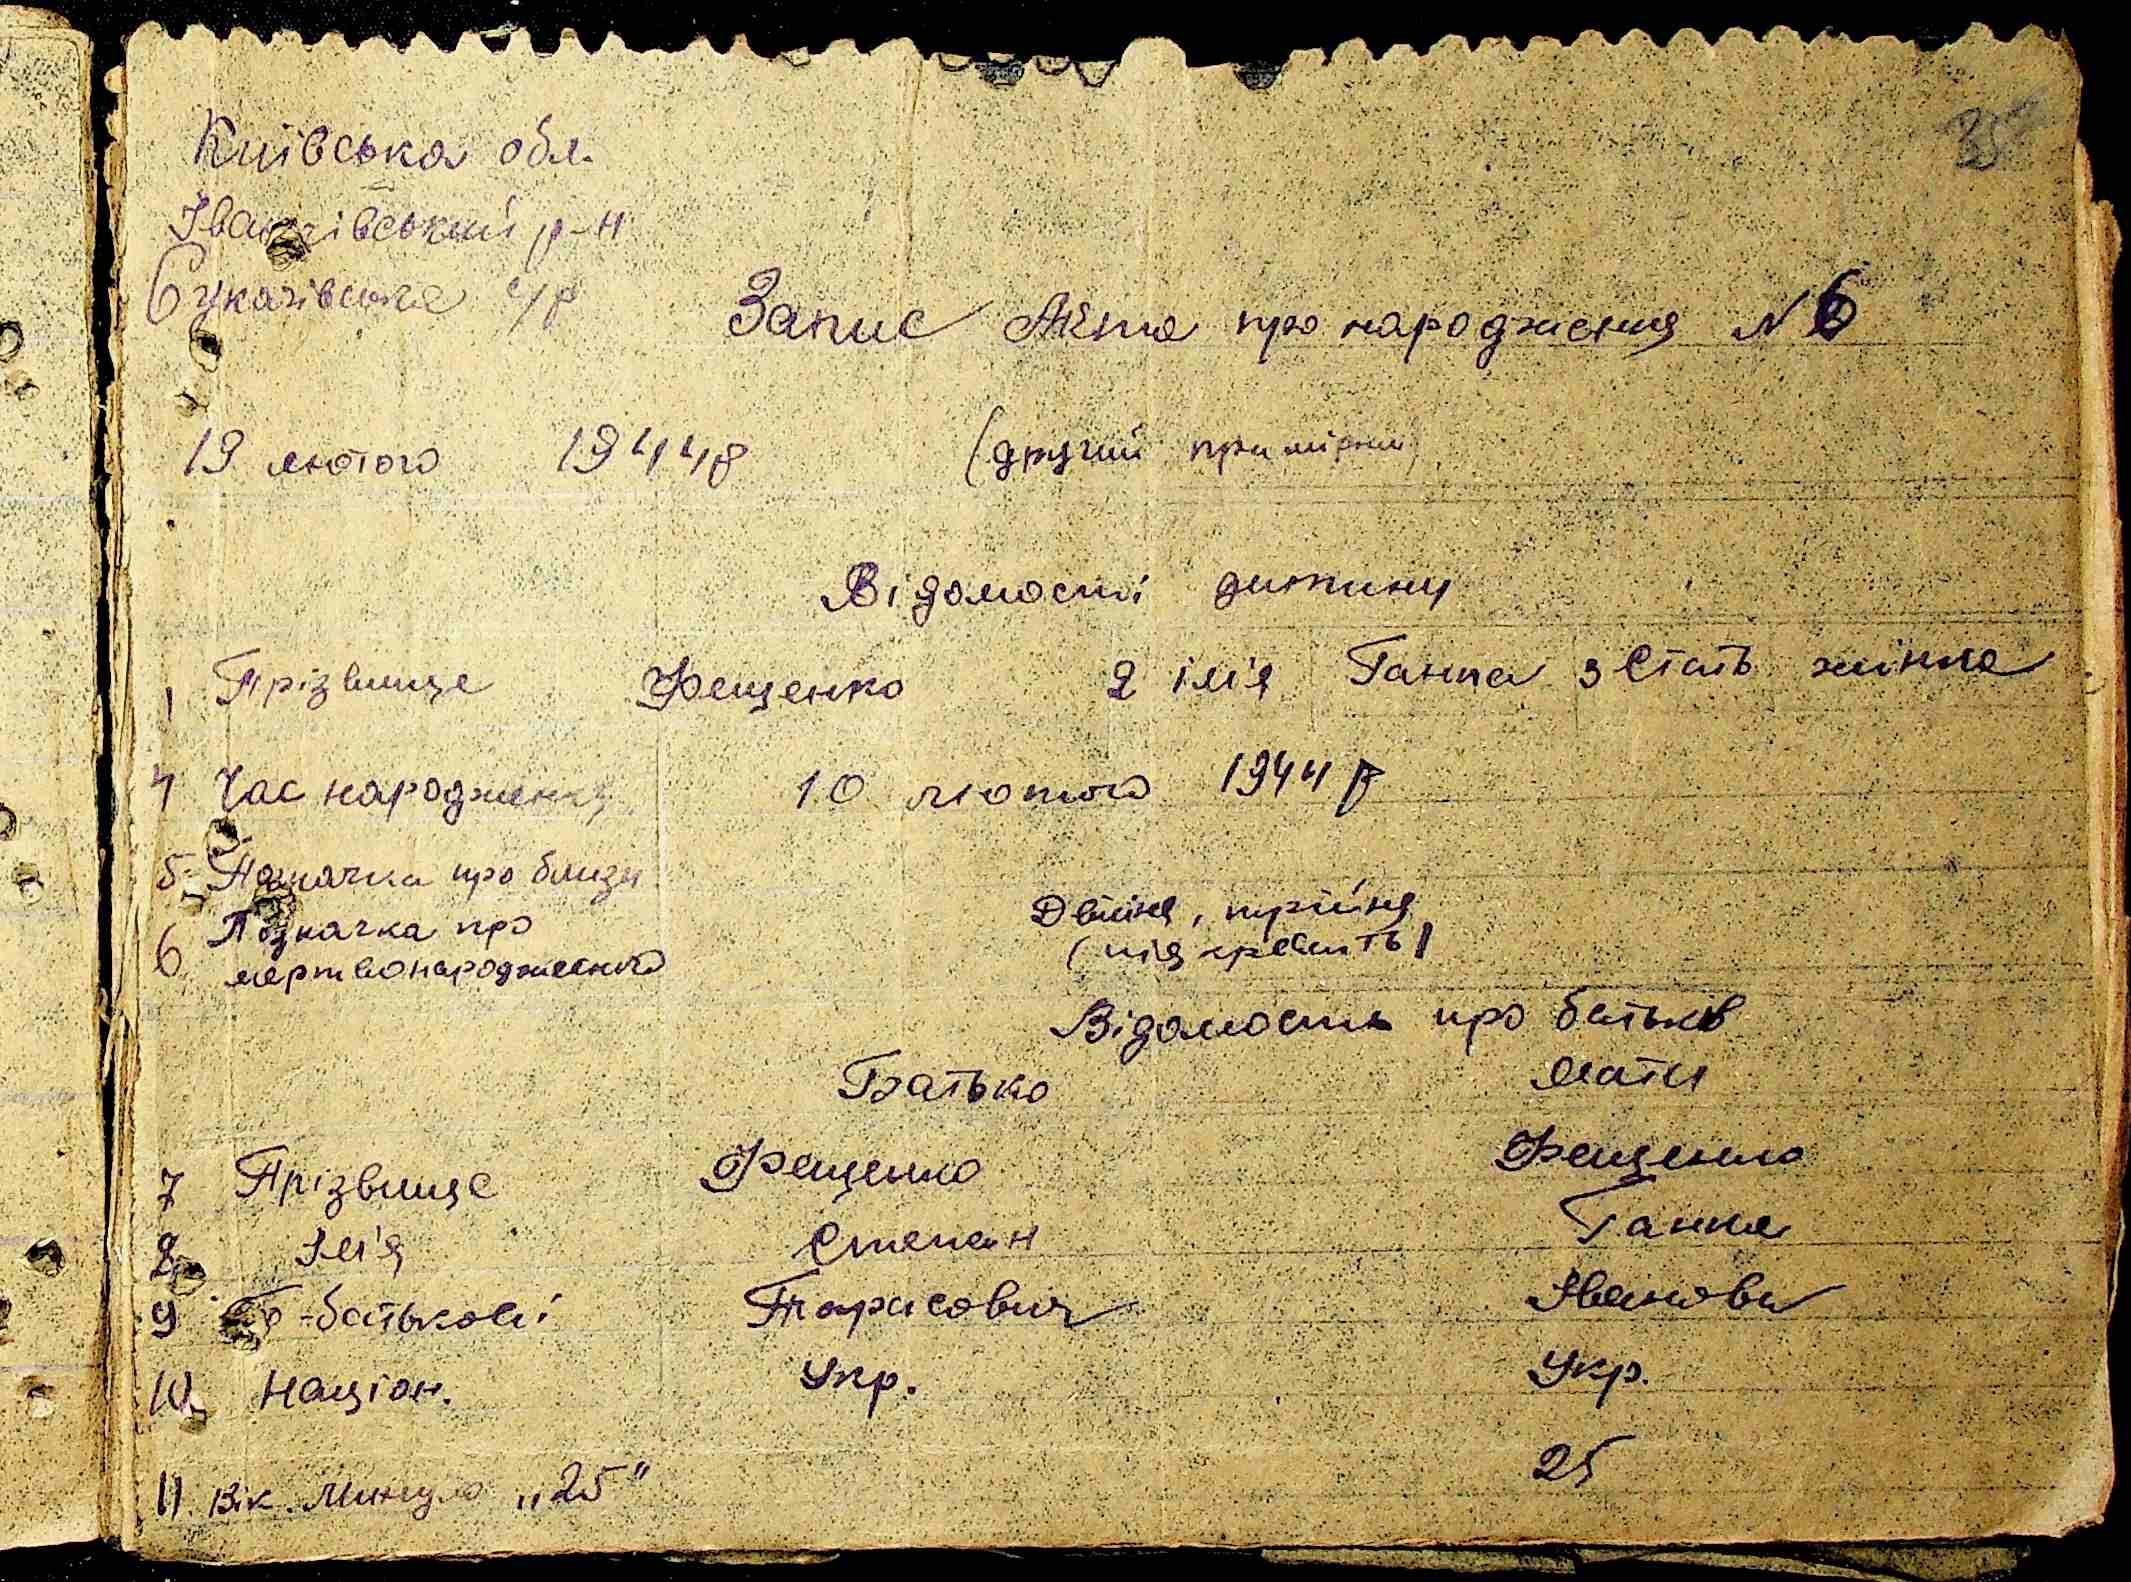 35
Київська обл.
Іванківський р-н
Сукачівська с/р
Запис Акта про народження N 6
19 лютого 1944 р (другий примірник)
Відомості дитини
1 Прізвище Фещенко 2 ім'я Ганна 3 Стать жіноча
4 Час народження 10 лютого 1944 р
5 Позначка про близн
6 Позначка про Двійня, трійня
мертвонародженого (підкреслить)
Відомость про батьків
Батько Мати
7 Прізвище Фещенко Фещенко
8 Ім'я Степан Ганна
9 По-батькові Тарасович Іванов
10 Націон. Укр. Укр.
11. Вік. Минуло „25" 25